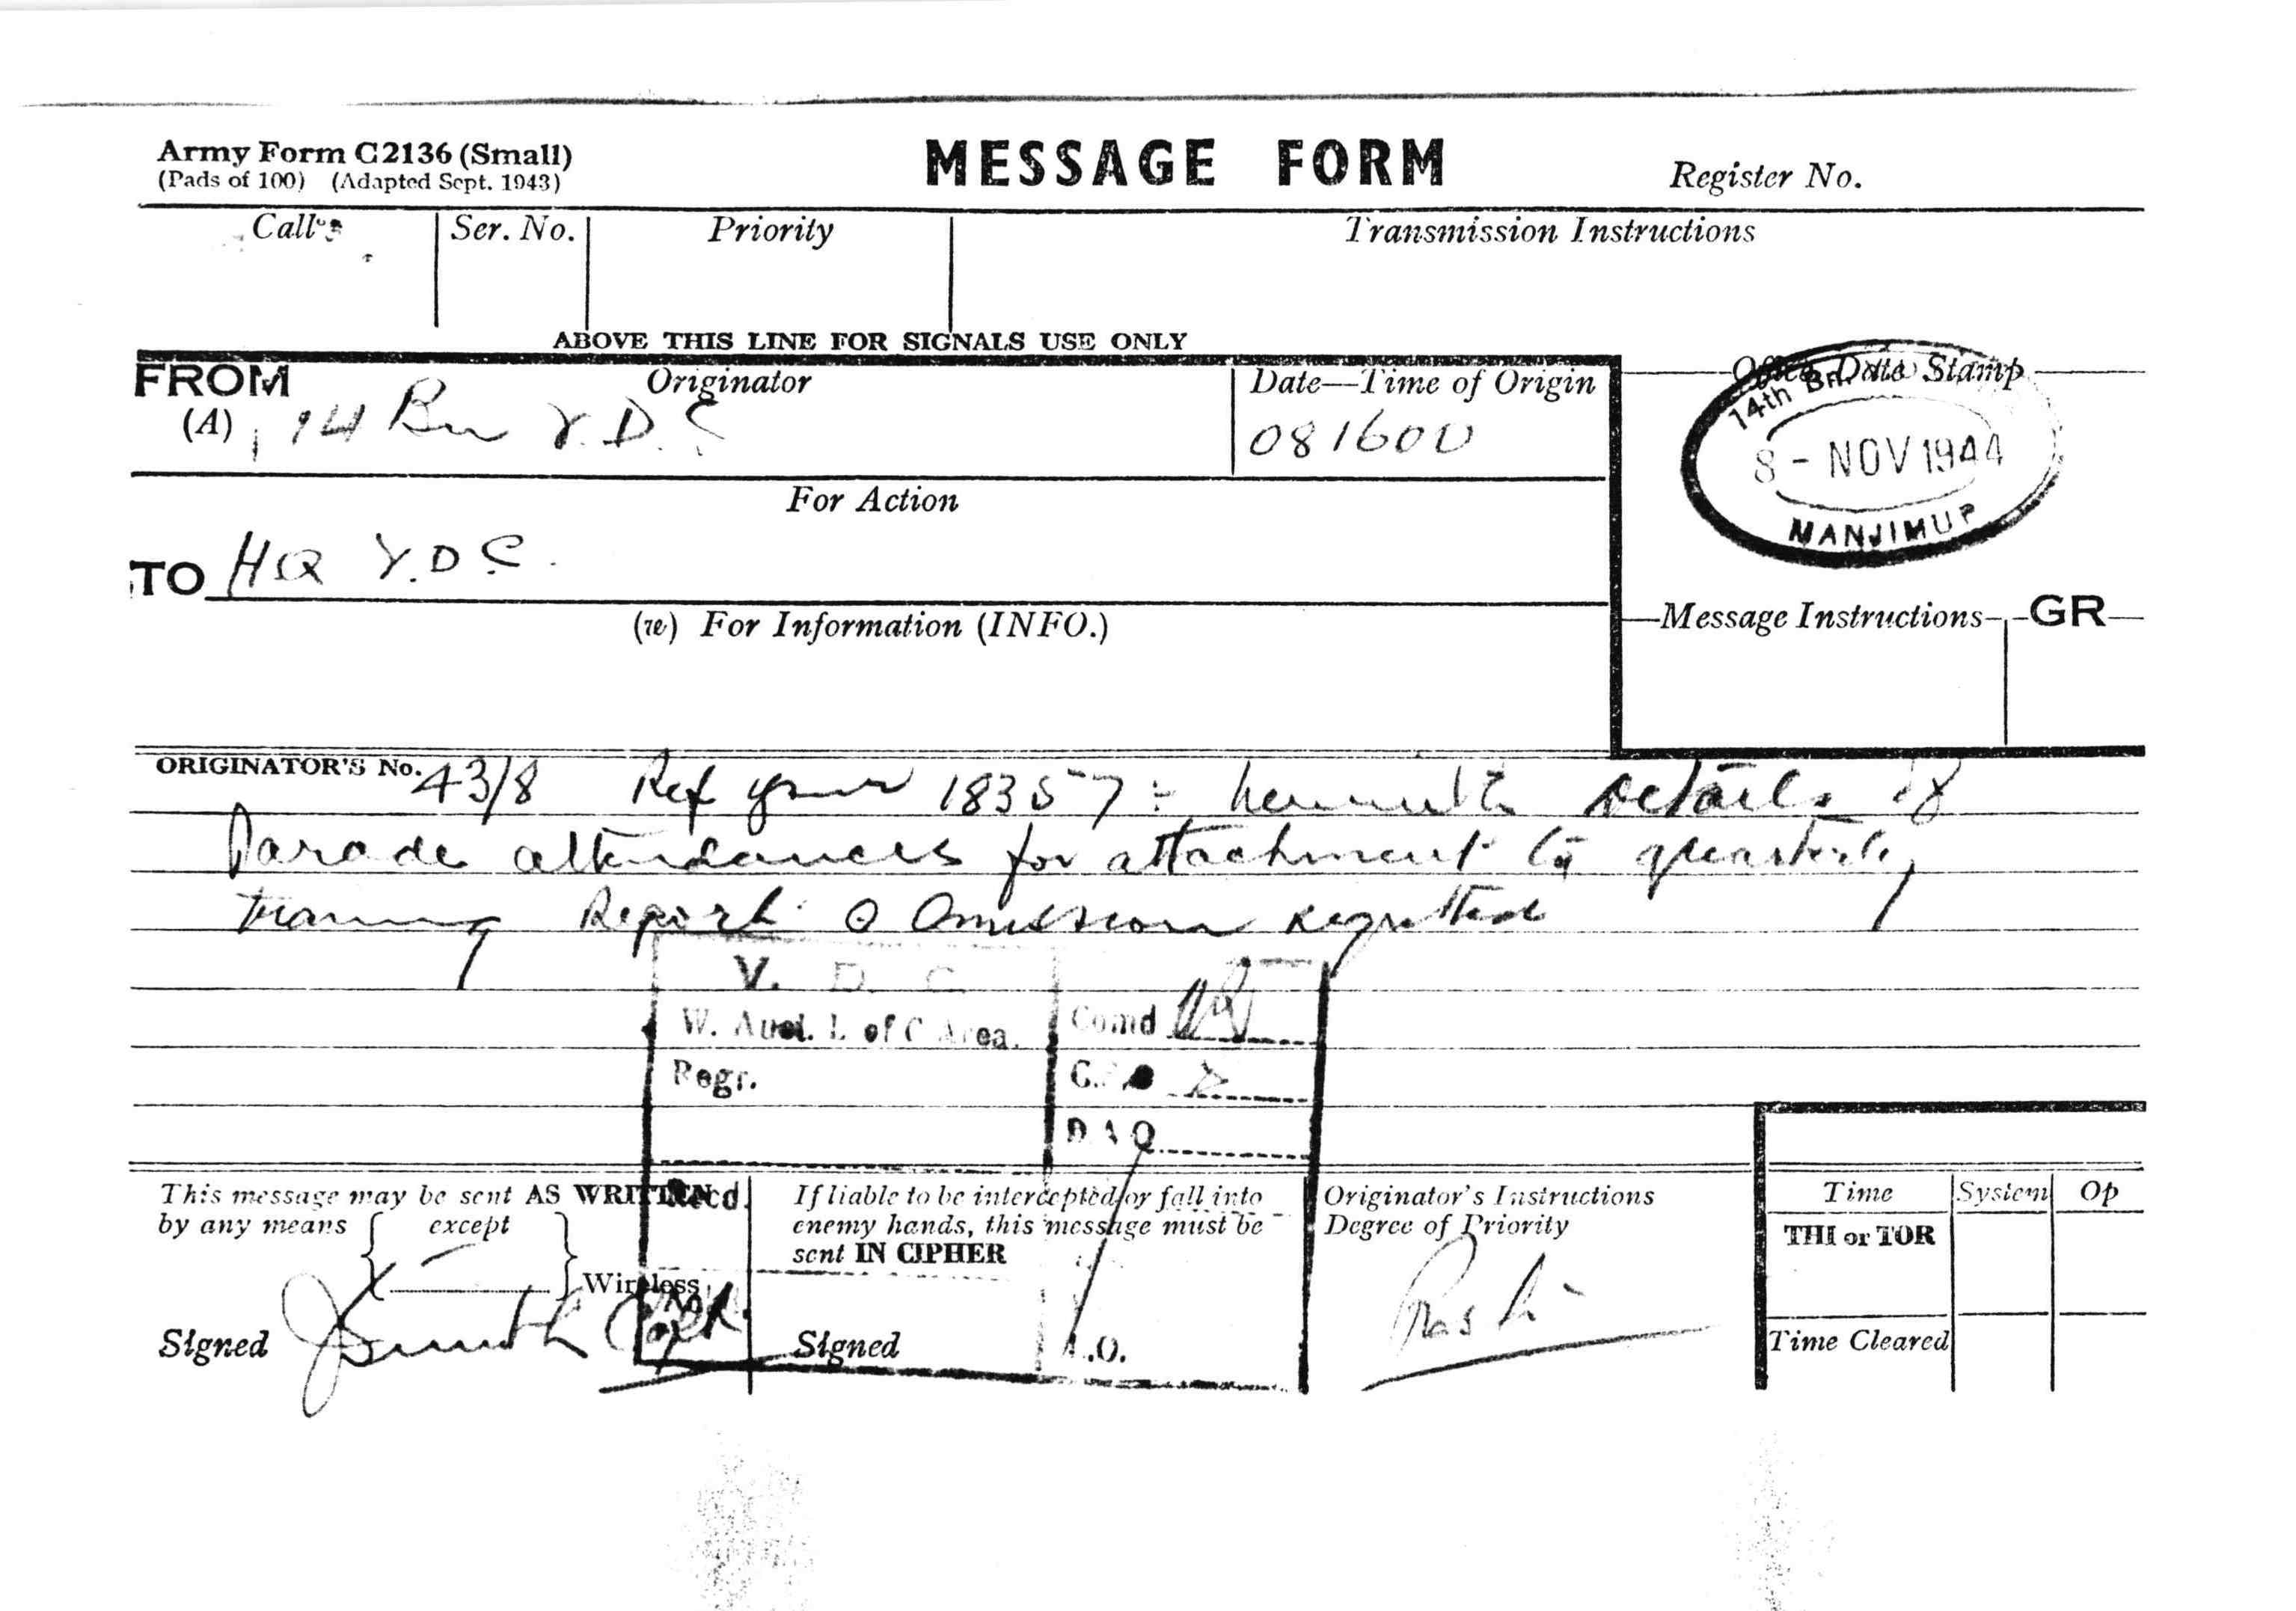 Army Form C2136 (Small)
(Pads of 100) (Adapted Sept. 1943)
MESSAGE FORM
Register No.
Call
Ser. No.
Priority
Transmission Instructions
ABOVE THIS LINE FOR SIGNALS USE ONLY
FROM
(A)
Originator
14 Bn V.D.C
Date—Time of Origin
081600
Office Date Stamp
14th Bn.
8 - NOV 1944
MANJIMUP
For Action
TO HQ V.D.C.
(w) For Information (INFO.)
Message Instructions
GR
ORIGINATOR'S No. 43/8 Ref your 18357 : herewith details of
Parade attendances for attachment to quarterly
training Report Omission regretted
V. D. C.
W. Aust. L of C Area.
Comd
Regr.
D A Q
Recd.
This message may be sent AS WRITTEN
by any means except
Wireless
Signed
JSmith Capt
If liable to be intercepted or fall into
enemy hands, this message must be
sent IN CIPHER
Signed
A.O.
Originator's Instructions
Degree of Priority
Time
System
Op
THI or TOR
Time Cleared